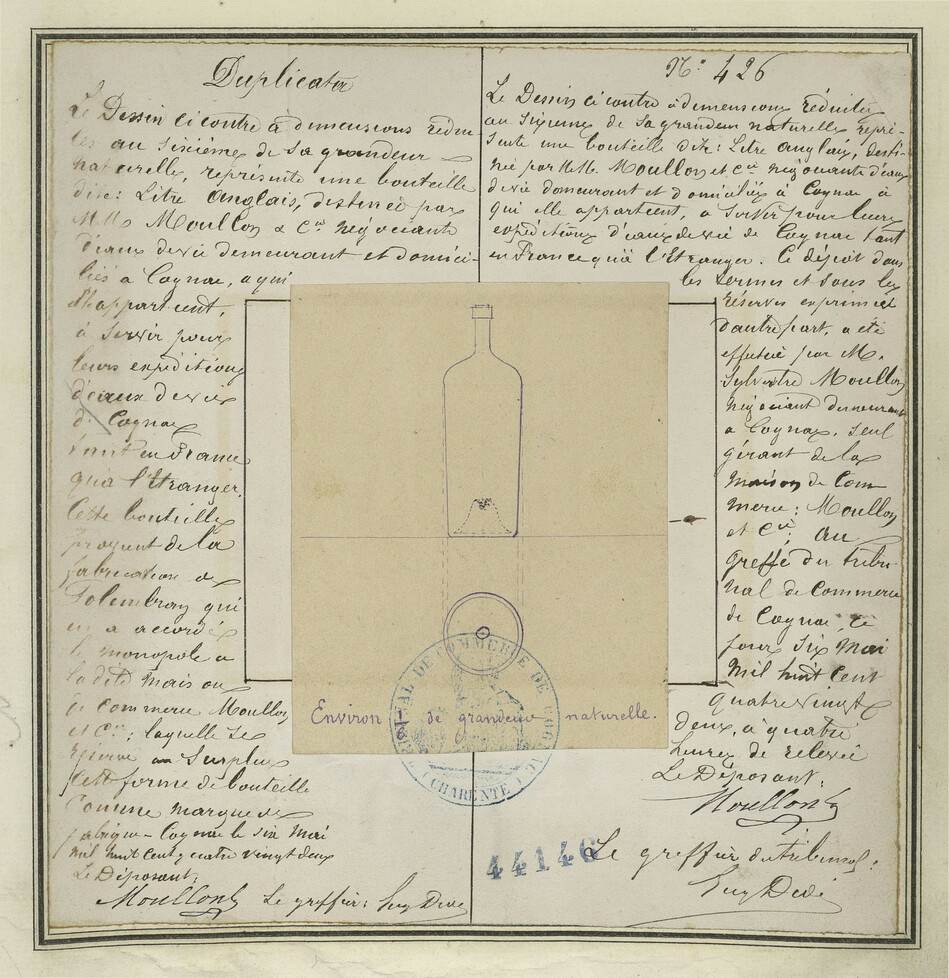 Duplicata
Le Dessin ci contre à dimensions rédui-
tes au sixième de sa grandeur
naturelle, représente une bouteille
dite: Litre Anglais, destinée par
MM. Moullon & Cie négociants
d'eaux de vie demeurant et domici-
liés à Cognac, a qui
elle appartient,
à servir pour
leurs expéditions
d'eaux de vie
de Cognac
tant en France
qu'à l'Etranger.
Cette bouteille
provient de la
fabrication de
Folembray qui
en a accordé
le monopole a
la dite maison
de commerce Moullon
et Cie; laquelle se
réserve au surplus
cette forme de bouteille
comme marque de
fabrique - Cognac le six Mai
mil huit cent quatre vingt deux
Le Déposant,
Moullon Le greffier:
No. 426
Le Dessin ci contre à dimensions réduites
au sixième de sa grandeur naturelle repré-
sente une bouteille dite: Litre Anglais, desti-
née par MM. Moullon et Cie négociants d'eaux
de vie demeurant et domiciliés à Cognac à
qui elle appartient, a servir pour leurs
expéditions d'eaux de vie de Cognac tant
en France qu'à l'Etranger. Ce dépôt dans
les termes et sous les
réserves exprimées
d'autre part, a été
effectué par M.
Sylvestre Moullon
négociant demeurant
a Cognac, seul
gérant de la
maison de Com
merce: Moullon
et Cie. Au
greffe du tribu-
nal de Commerce
de Cognac, ce
jour six Mai
mil huit cent
quatre vingt
deux, à quatre
heures de relevée
Le Déposant:
Moullon
Le greffier du tribunal:
Environ 1/6 de grandeur naturelle.
TRIBUNAL DE COMMERCE DE COGNAC
(CHARENTE)
44146